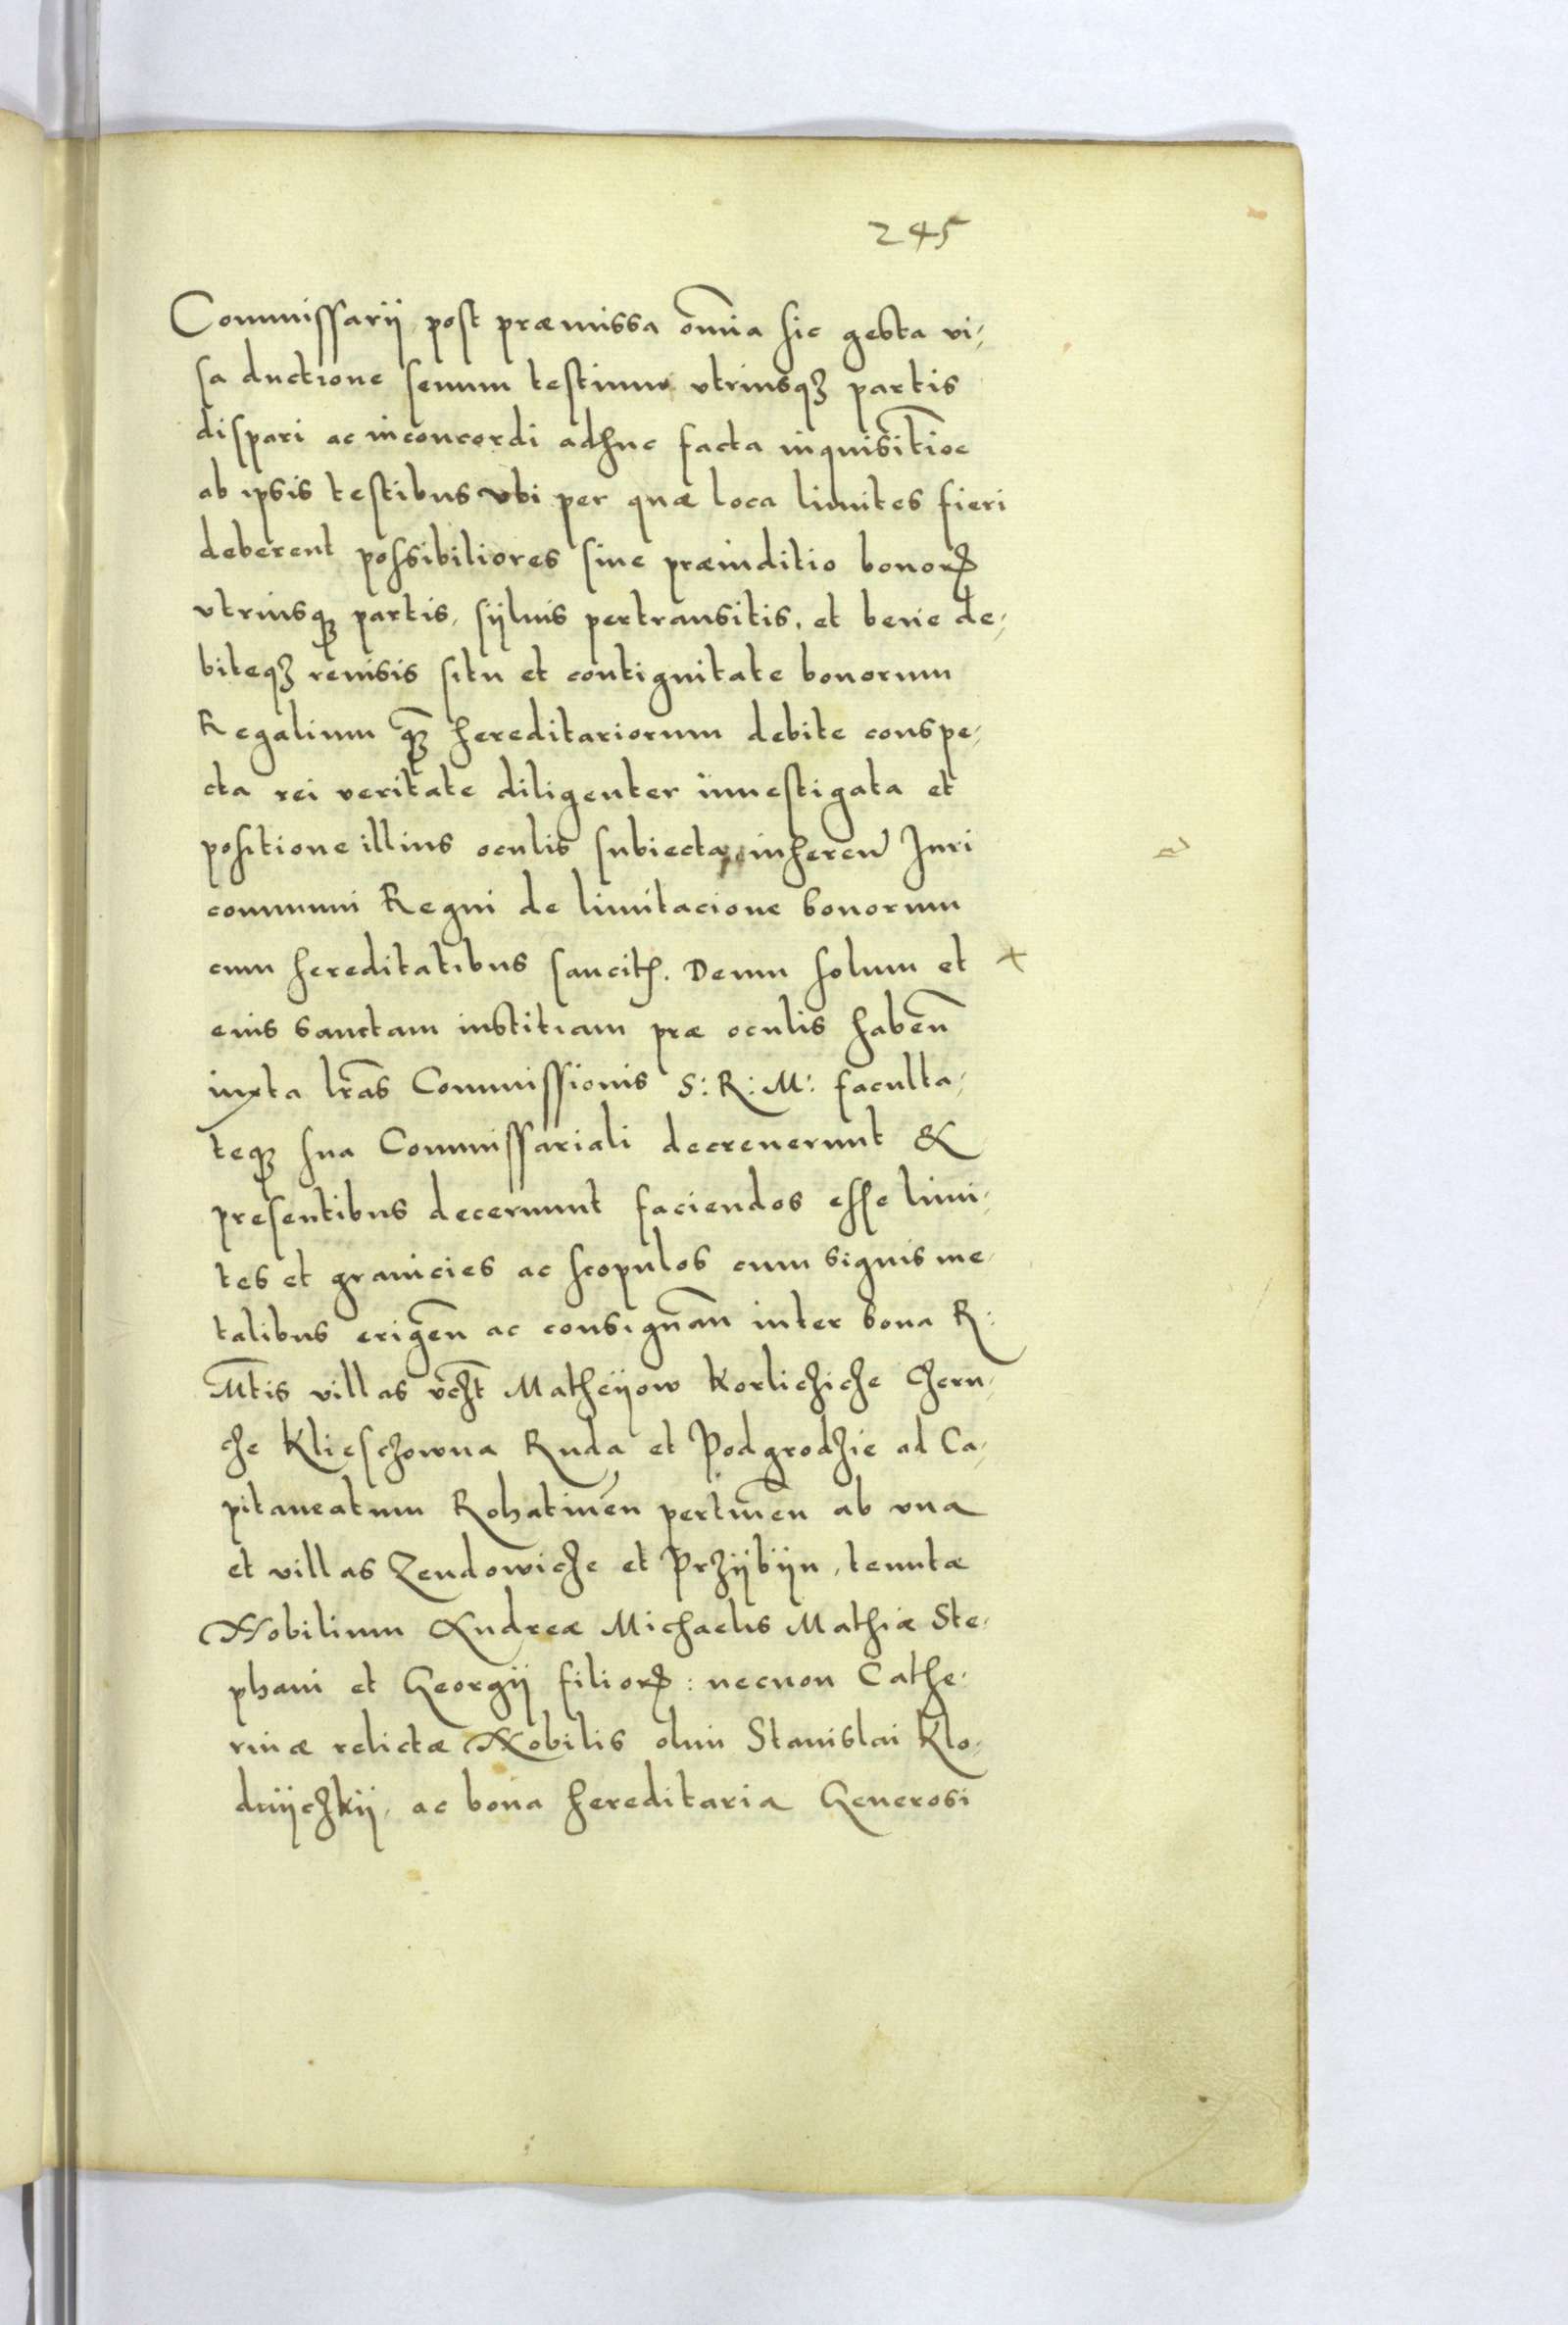 245
Commissarij post præmissa om̃ia sic gesta vi-
sa ductione senum testium vtriusqz partis
dispari ac inconcordi adhuc facta inquisitioe
ab ipsis testibus vbi per quæ loca limites fieri
deberent possibiliores sine præiuditio bonorꝝ
vtriusqꝫ partis, sÿluis pertransitis, et bene de-
biteqꝫ reuisis situ et contiguitate bonorum
Regalium qꝫ hereditariorum debite conspe-
cta rei veritate diligenter inuestigata et
positione illius oculis subiecta, inheren̄ Juri
communi Regni de limitacione bonorum
cum hereditatibus sancitꝭ. Deum solum et
eius sanctam iustitiam præ oculis haben̄
iuxta lr̃as Commissionis S: R: M: faculta-
teqꝫ sua Commissariali decreuerunt &
presentibus decernunt faciendos esse limi-
tes et granicies ac scopulos cum signis me-
talibus erigen̄ ac consignan̄ inter bona R:
Mt̃is villas vcꝫt Matheÿow Korlichiche Chern-
che Klieschowna Ruda et Podgrodzie ad Ca-
pitaneatum Rohatinen̄ pertinen̄ ab vna
et villas Zendowicze et Przÿbÿn, tenutæ
Nobilium Andreæ Michaelis Mathiæ Ste-
phani et Georgij filiorꝝ: necnon Cathe-
rinæ relictæ Nobilis olim Stanislai Klo-
dniczkij, ac bona hereditaria Generosi